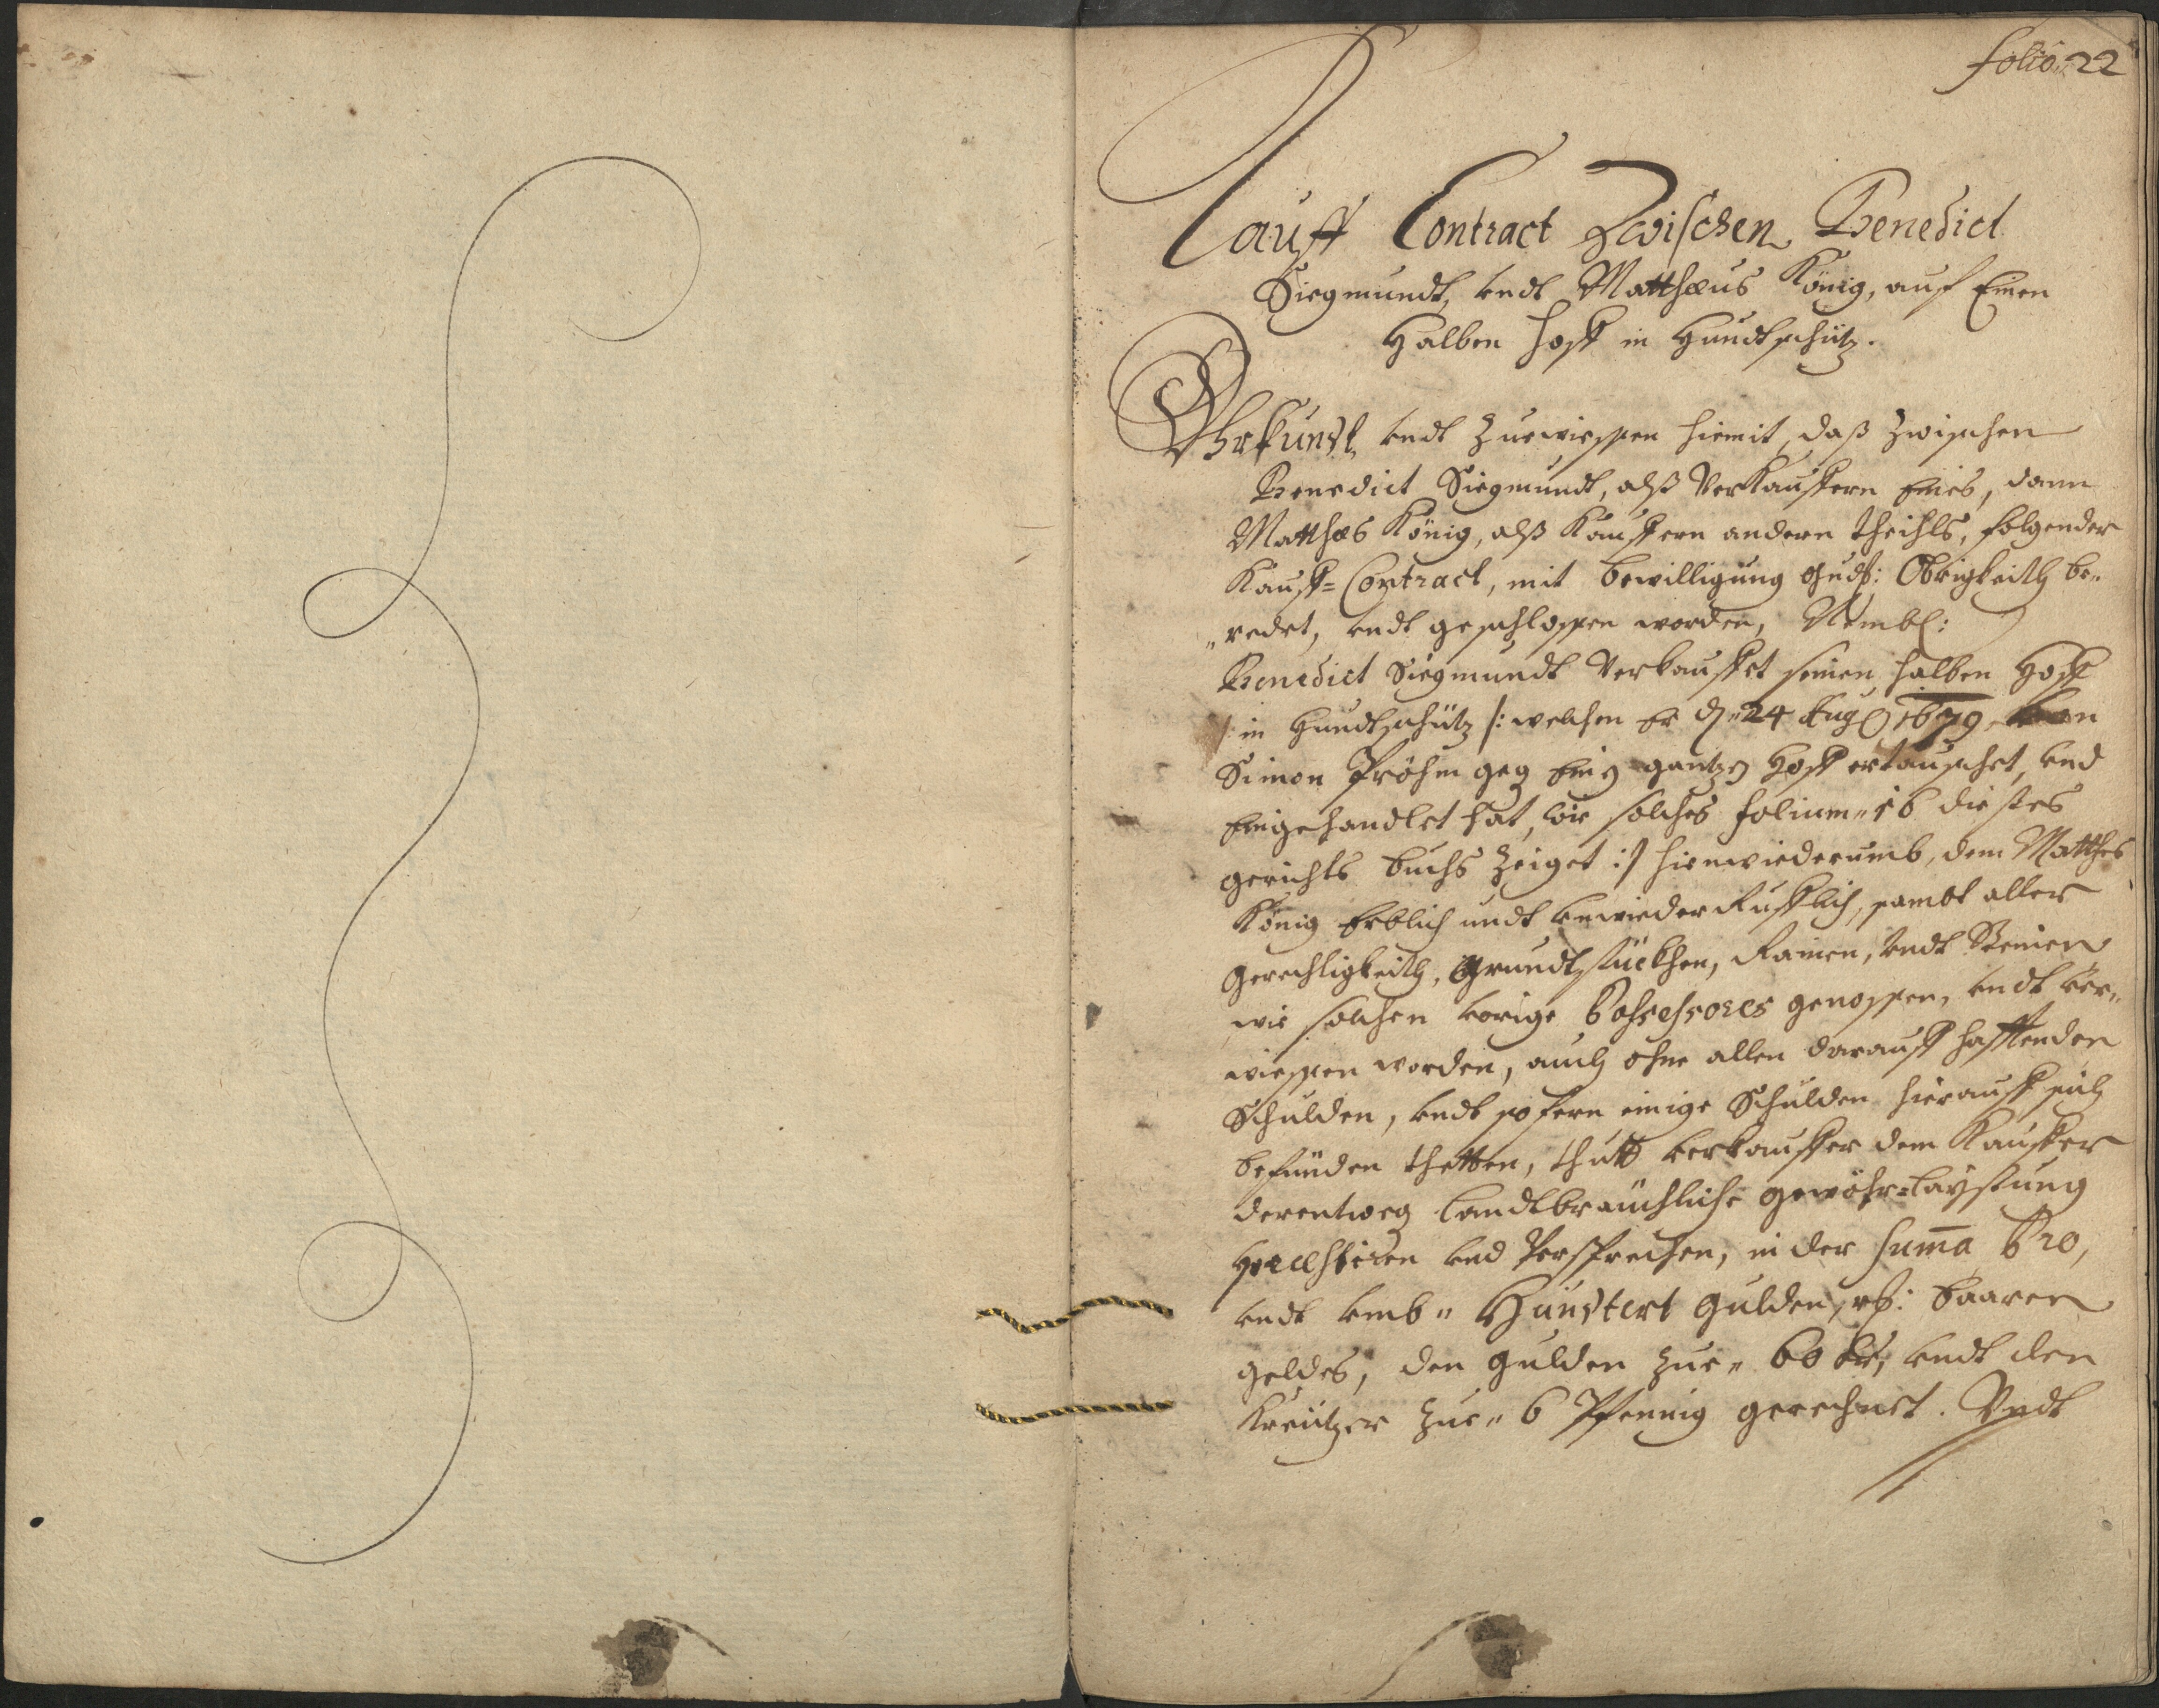 folio. 22
Kauff Contract Zwischen Benedict
Siegmundt, undt Matthæus König, auf Einen
Halben Hoff in Hundtschütz.
Uhrkundt, undt Zuewiessen hiemit, daß zwischen
Benedict Siegmundt, alß Verkauffern Eines, dann
Matthæs König, alß Kauffern andern theihls, folgender
Kauff=Contract, mit bewilligung gndh: Obrigkeith be„
„redet, undt geschlossen worden, Nembl:
Benedict Siegmundt Verkauffet seinen halben Hoff
in Hundtschütz /: welchen Er d. 24 Aug 1679 von
Simon Pröhm geg Ein gantzen Hoff ertauschet, und
Eingehandlet hat, wie solches folium„ 16 dieses
gerichts buchs Zeiget :/ hinwiederumb, dem Matthes
König Erblich undt unwiederRufflich, sambt aller
Gerechtigkeith, Grundtstückhen, Rainen, undt Steinen
wie solchen vorige Possessores genossen, undt ver„
wiessen worden, auch ohne allen darauff hafftenden
Schulden, undt so fern einige Schulden hierauff sich
befinden thetten, thutt verkauffer dem Kauffer
derentweg landtbräuchliche gewöhr=laystung
præstiren und Versprechen, in der Summa Pro,
undt umb„ Hundtert Gulden, rh: baaren
geldes, den gulden zue„ 60 kr, undt den
Kreützer zue„ 6 Pfennig gerechnet. Undt